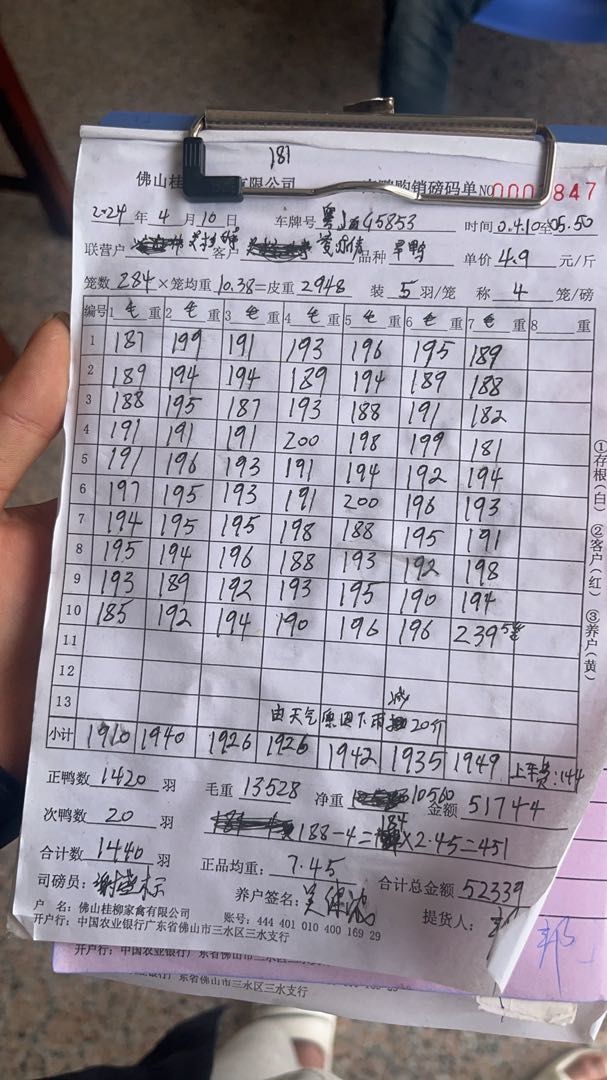 181
佛山桂 有限公司 鸭购销磅码单 NO 000 847
2024 年 4 月 10 日 车牌号 G5853 时间 0.4.10至05.50
联营户 客户 品种 旱鸭 单价 4.9 元/斤
笼数 284 ×笼均重 10.38=皮重 2948 装 5 羽/笼 称 4 笼/磅
编号 1 毛 重 2 毛 重 3 毛 重 4 毛 重 5 毛 重 6 毛 重 7 毛 重 8 重
1 187 199 191 193 196 195 189
2 189 194 194 189 194 189 188
3 188 195 187 193 188 191 182
4 191 191 191 200 198 199 181
5 191 196 193 191 194 192 194
6 197 195 193 191 200 196 193
7 194 195 195 198 188 195 191
8 195 194 196 188 193 192 198
9 193 189 192 193 195 190 194
10 185 192 194 190 196 196 239 5笼
11
12
13 由天气原因下雨 减 20斤
小计 1910 1940 1926 1926 1942 1935 1949 上车费:144
正鸭数 1420 羽 毛重 13528 净重 10560 金额 51744
次鸭数 20 羽 188-4=184×2.45=451
合计数 1440 羽 正品均重: 7.45 合计总金额 52339
司磅员: 养户签名: 提货人:
户 名: 佛山桂柳家禽有限公司 账号: 444 401 010 400 169 29
开户行: 中国农业银行广东省佛山市三水区三水支行
①存根(白) ②客户(红) ③养户(黄)
邦
开户行: 中国农业银行广东省佛山市三水区三水支行
业银行广东省佛山市三水区三水支行